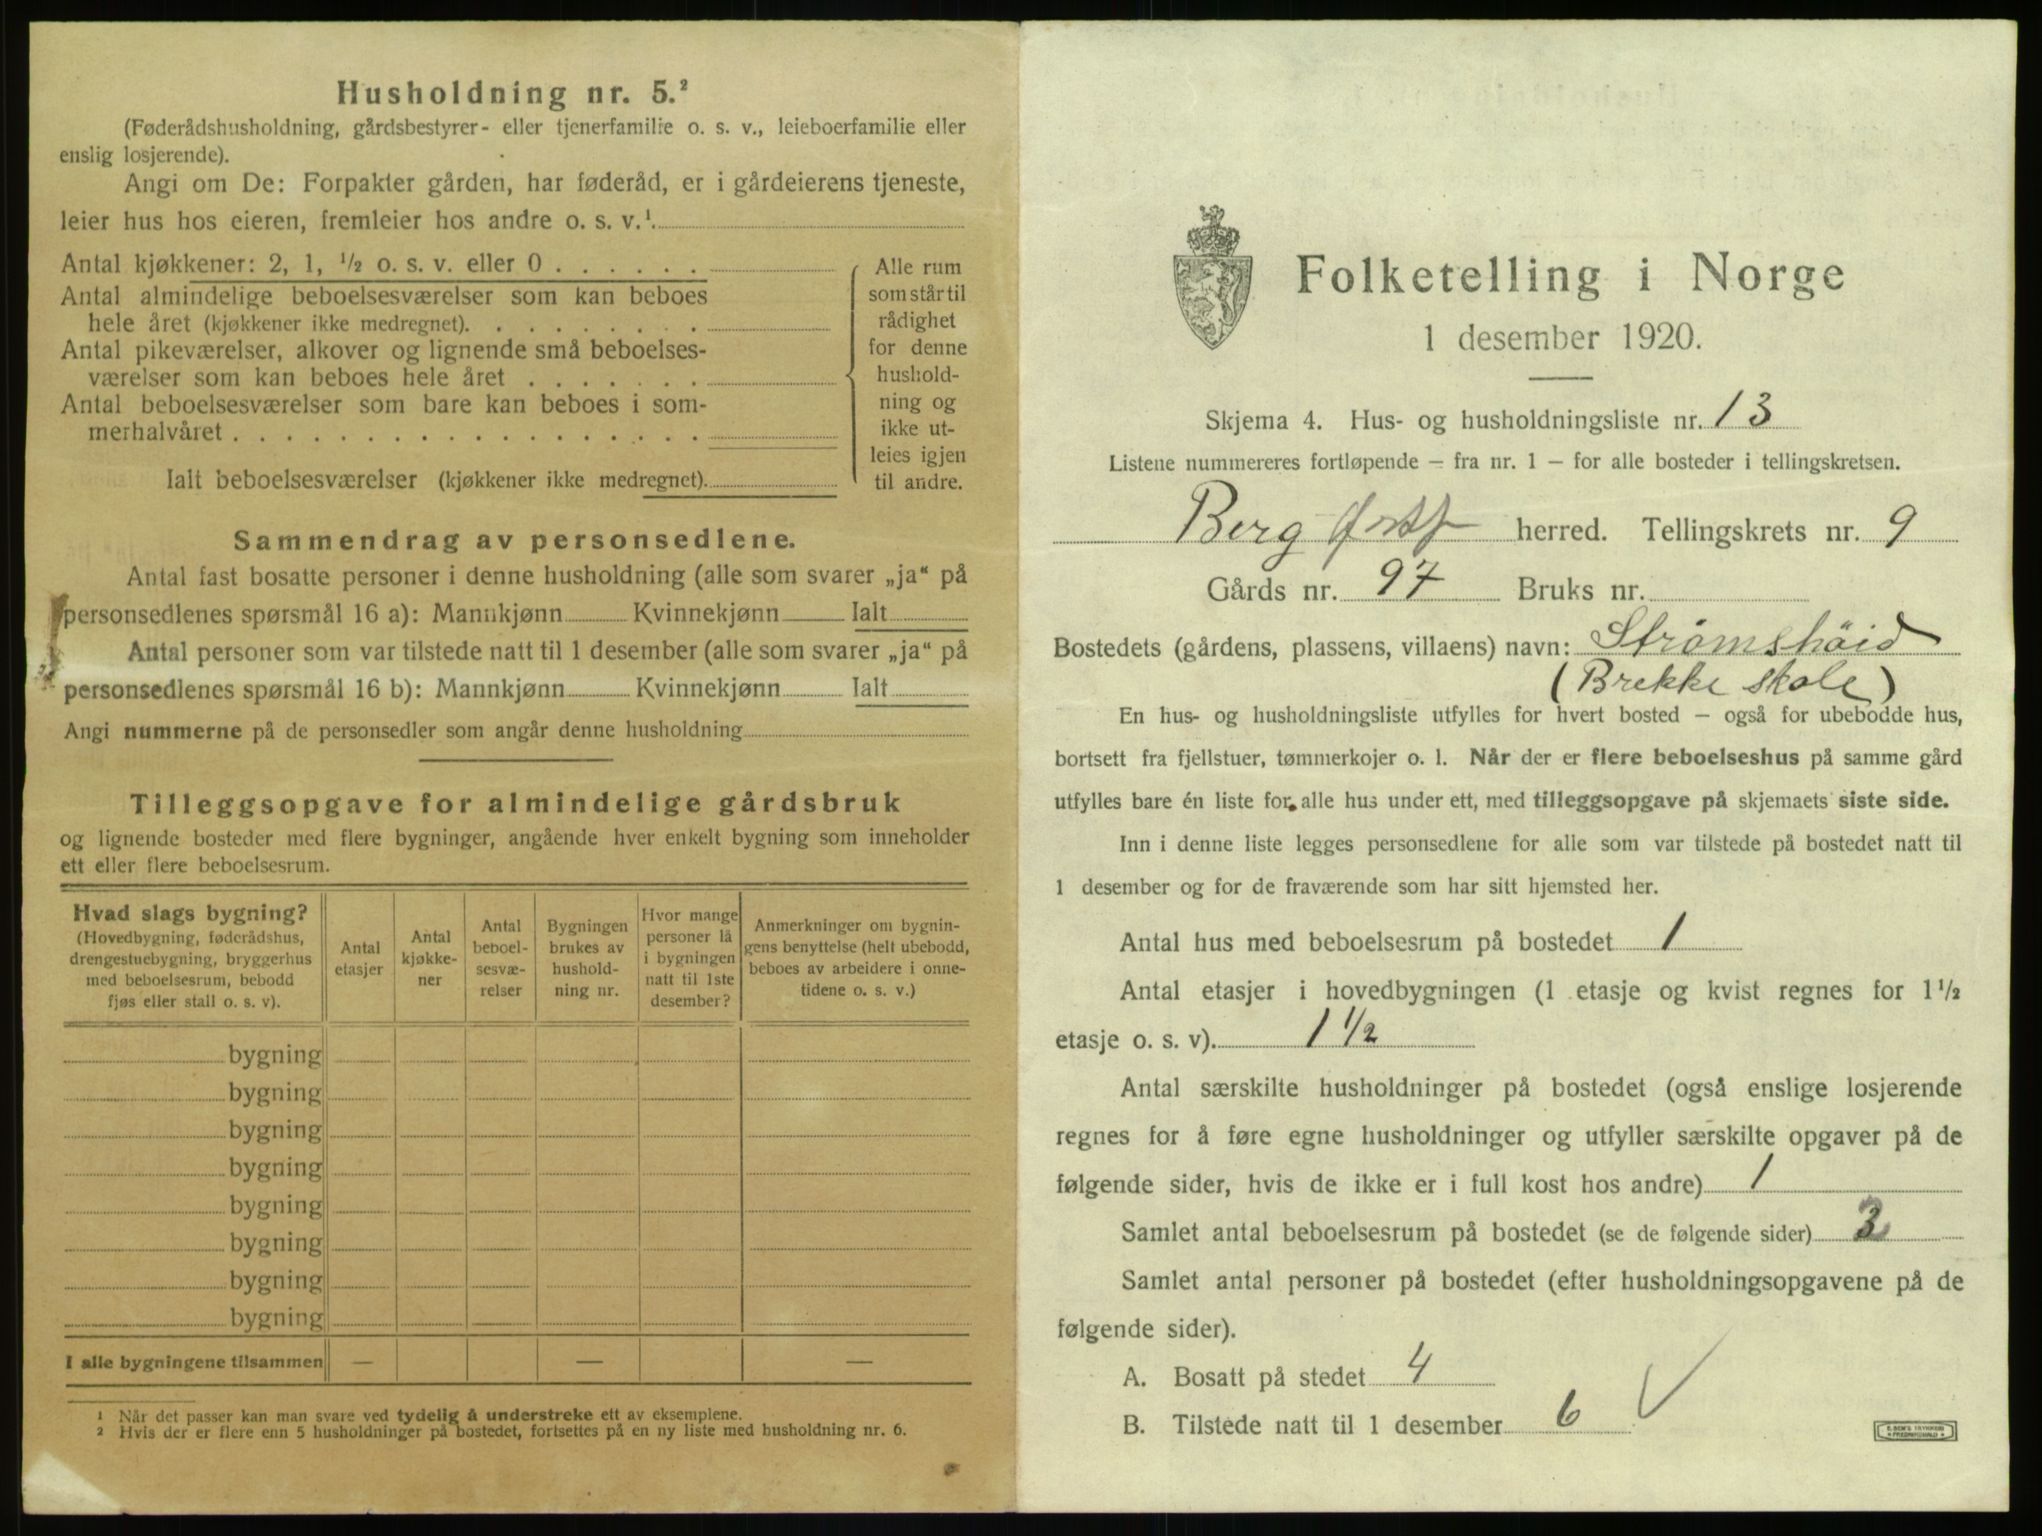 Husholdning nr. 5.²
(Føderådshusholdning, gårdsbestyrer- eller tjenerfamilie o. s. v., leieboerfamilie eller
enslig losjerende).
Angi om De: Forpakter gården, har føderåd, er i gårdeierens tjeneste,
leier hus hos eieren, fremleier hos andre o. s. v.¹
Antal kjøkkener: 2, 1, ½ o. s. v. eller 0 . . . . . .
Antal almindelige beboelsesværelser som kan beboes
hele året (kjøkkener ikke medregnet). . . . . . . . .
Antal pikeværelser, alkover og lignende små beboelses-
værelser som kan beboes hele året . . . . . . .
Antal beboelsesværelser som bare kan beboes i som-
merhalvåret . . . . . . . . . . . . . . . . . .
Ialt beboelsesværelser (kjøkkener ikke medregnet).
Alle rum
som står til
rådighet
for denne
hushold-
ning og
ikke ut-
leies igjen
til andre.
Sammendrag av personsedlene.
Antal fast bosatte personer i denne husholdning (alle som svarer „ja“ på
personsedlenes spørsmål 16 a): Mannkjønn Kvinnekjønn Ialt
Antal personer som var tilstede natt til 1 desember (alle som svarer „ja“ på
personsedlenes spørsmål 16 b): Mannkjønn Kvinnekjønn Ialt
Angi nummerne på de personsedler som angår denne husholdning
Tilleggsopgave for almindelige gårdsbruk
og lignende bosteder med flere bygninger, angående hver enkelt bygning som inneholder
ett eller flere beboelsesrum.
Hvad slags bygning?
(Hovedbygning, føderådshus,
drengestuebygning, bryggerhus
med beboelsesrum, bebodd
fjøs eller stall o. s. v).
Antal
etasjer
Antal
kjøkke-
ner
Antal
beboel-
sesvæ-
relser
Bygningen
brukes av
hushold-
ning nr.
Hvor mange
personer lå
i bygningen
natt til 1ste
desember?
Anmerkninger om bygnin-
gens benyttelse (helt ubebodd,
beboes av arbeidere i onne-
tidene o. s. v.)
bygning
bygning
bygning
bygning
bygning
bygning
bygning
bygning
I alle bygningene tilsammen — — —
¹ Når det passer kan man svare ved tydelig å understreke ett av eksemplene.
² Hvis der er flere enn 5 husholdninger på bostedet, fortsettes på en ny liste med husholdning nr. 6.
Folketelling i Norge
1 desember 1920.
Skjema 4. Hus- og husholdningsliste nr. 13
Listene nummereres fortløpende — fra nr. 1 — for alle bosteder i tellingskretsen.
Berg Østf herred. Tellingskrets nr. 9
Gårds nr. 97 Bruks nr.
Bostedets (gårdens, plassens, villaens) navn: Strömshöid
(Brekke skole)
En hus- og husholdningsliste utfylles for hvert bosted — også for ubebodde hus,
bortsett fra fjellstuer, tømmerkojer o. l. Når der er flere beboelseshus på samme gård
utfylles bare én liste for alle hus under ett, med tilleggsopgave på skjemaets siste side.
Inn i denne liste legges personsedlene for alle som var tilstede på bostedet natt til
1 desember og for de fraværende som har sitt hjemsted her.
Antal hus med beboelsesrum på bostedet 1
Antal etasjer i hovedbygningen (1 etasje og kvist regnes for 1½
etasje o. s. v). 1½
Antal særskilte husholdninger på bostedet (også enslige losjerende
regnes for å føre egne husholdninger og utfyller særskilte opgaver på de
følgende sider, hvis de ikke er i full kost hos andre) 1
Samlet antal beboelsesrum på bostedet (se de følgende sider)
Samlet antal personer på bostedet (efter husholdningsopgavene på de
følgende sider).
A. Bosatt på stedet 4
B. Tilstede natt til 1 desember 6